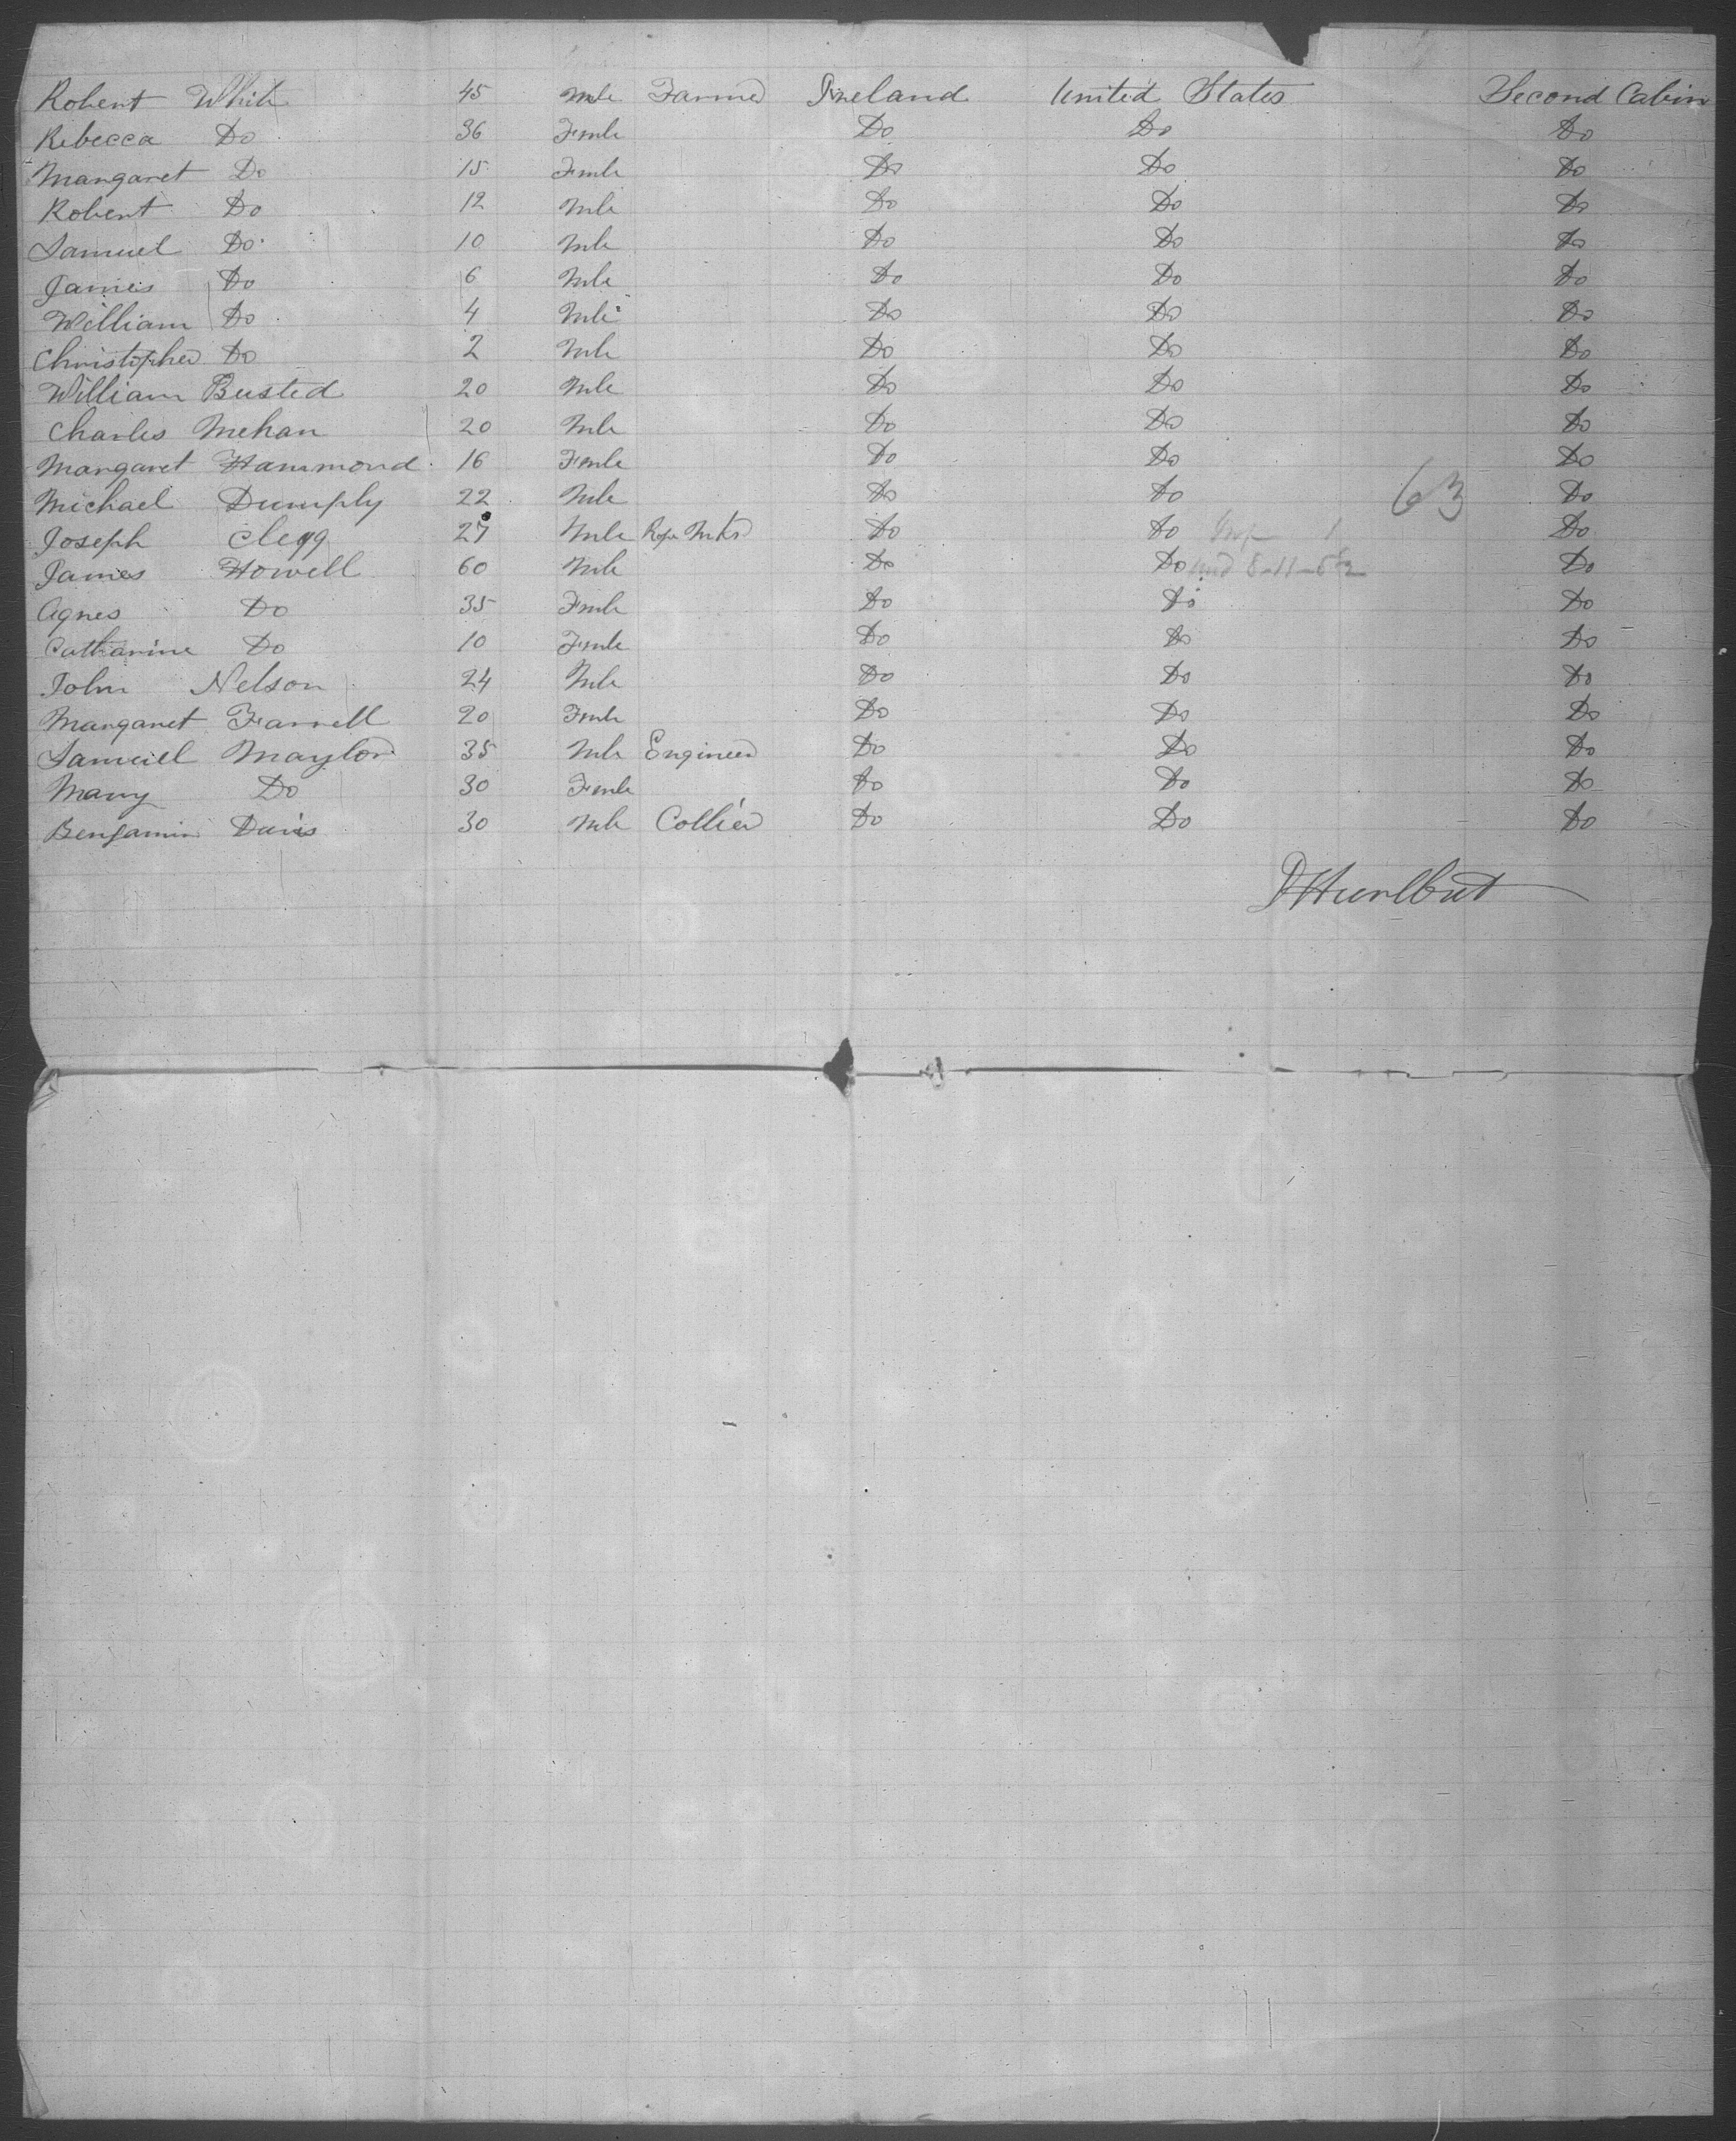 Robert White 45 Mle Farmer Ireland United States Second Cabin
Rebecca Do 36 Fmle Do Do Do
Margaret Do 15 Fmle Do Do Do
Robert Do 12 Mle Do Do Do
Samuel Do 10 Mle Do Do Do
James Do 6 Mle Do Do Do
William Do 4 Mle Do Do Do
Christopher Do 2 Mle Do Do Do
William Busted 20 Mle Do Do Do
Charles Mehan 20 Mle Do Do Do
Margaret Hammond 16 Fmle Do Do Do
Michael Dumply 22 Mle Do Do 63 Do
Joseph Clegg 27 Mle Rope Mkr Do Do Do
James Howell 60 Mle Do Do Do
Agnes Do 35 Fmle Do Do Do
Catharine Do 10 Fmle Do Do Do
John Nelson 24 Mle Do Do Do
Margaret Farrell 20 Fmle Do Do Do
Samuel Maylor 35 Mle Engineer Do Do Do
Mary Do 30 Fmle Do Do Do
Benjamin Davis 30 Mle Collier Do Do Do
Hurlbut